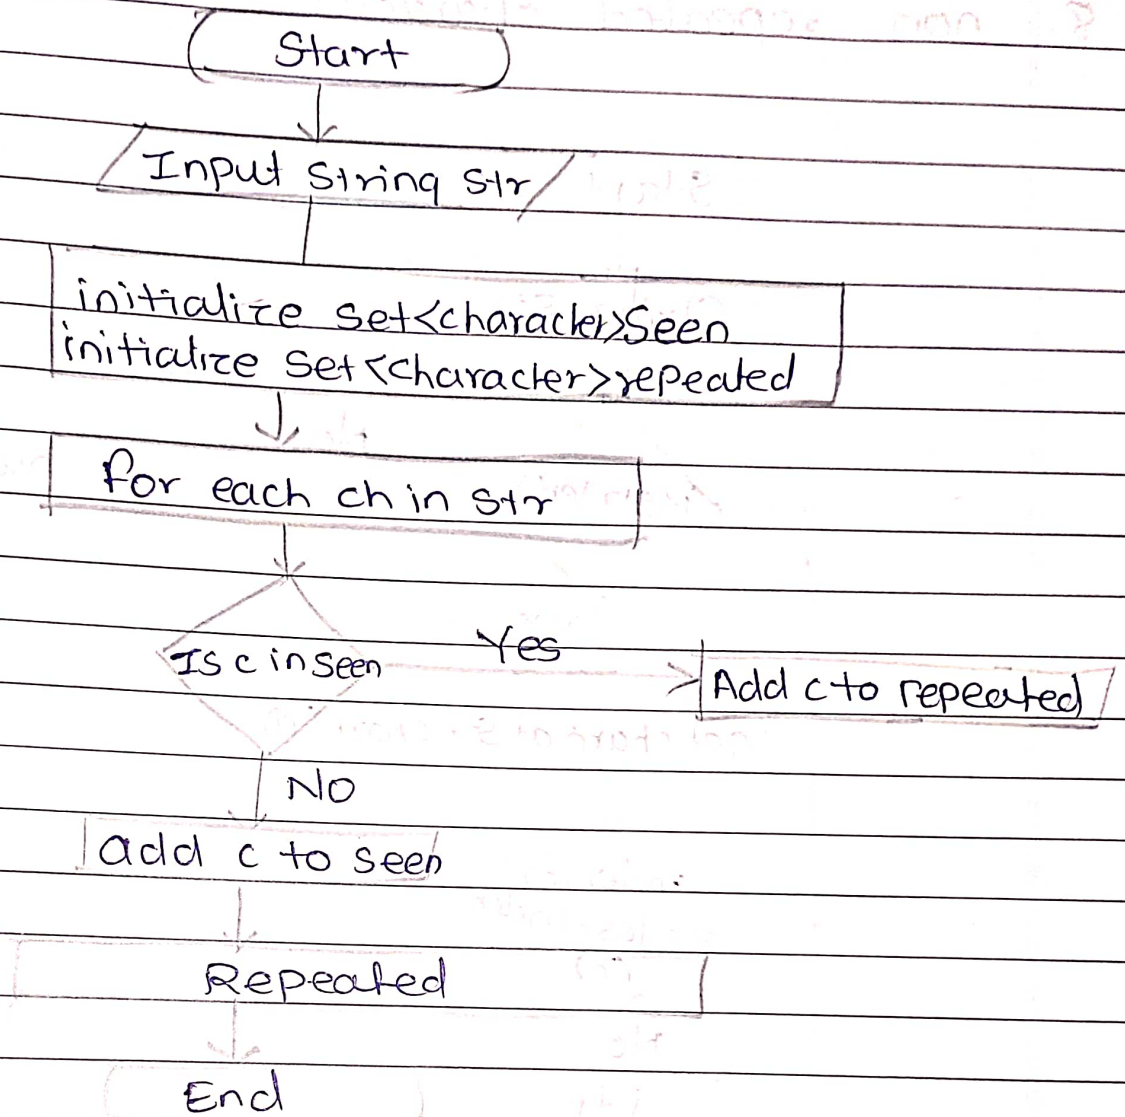 Start
Input String Str
initialize Set<character>Seen
initialize Set<character>repeated
for each ch in Str
Is c in seen
Yes
Add c to repeated
NO
add c to seen
Repeated
End